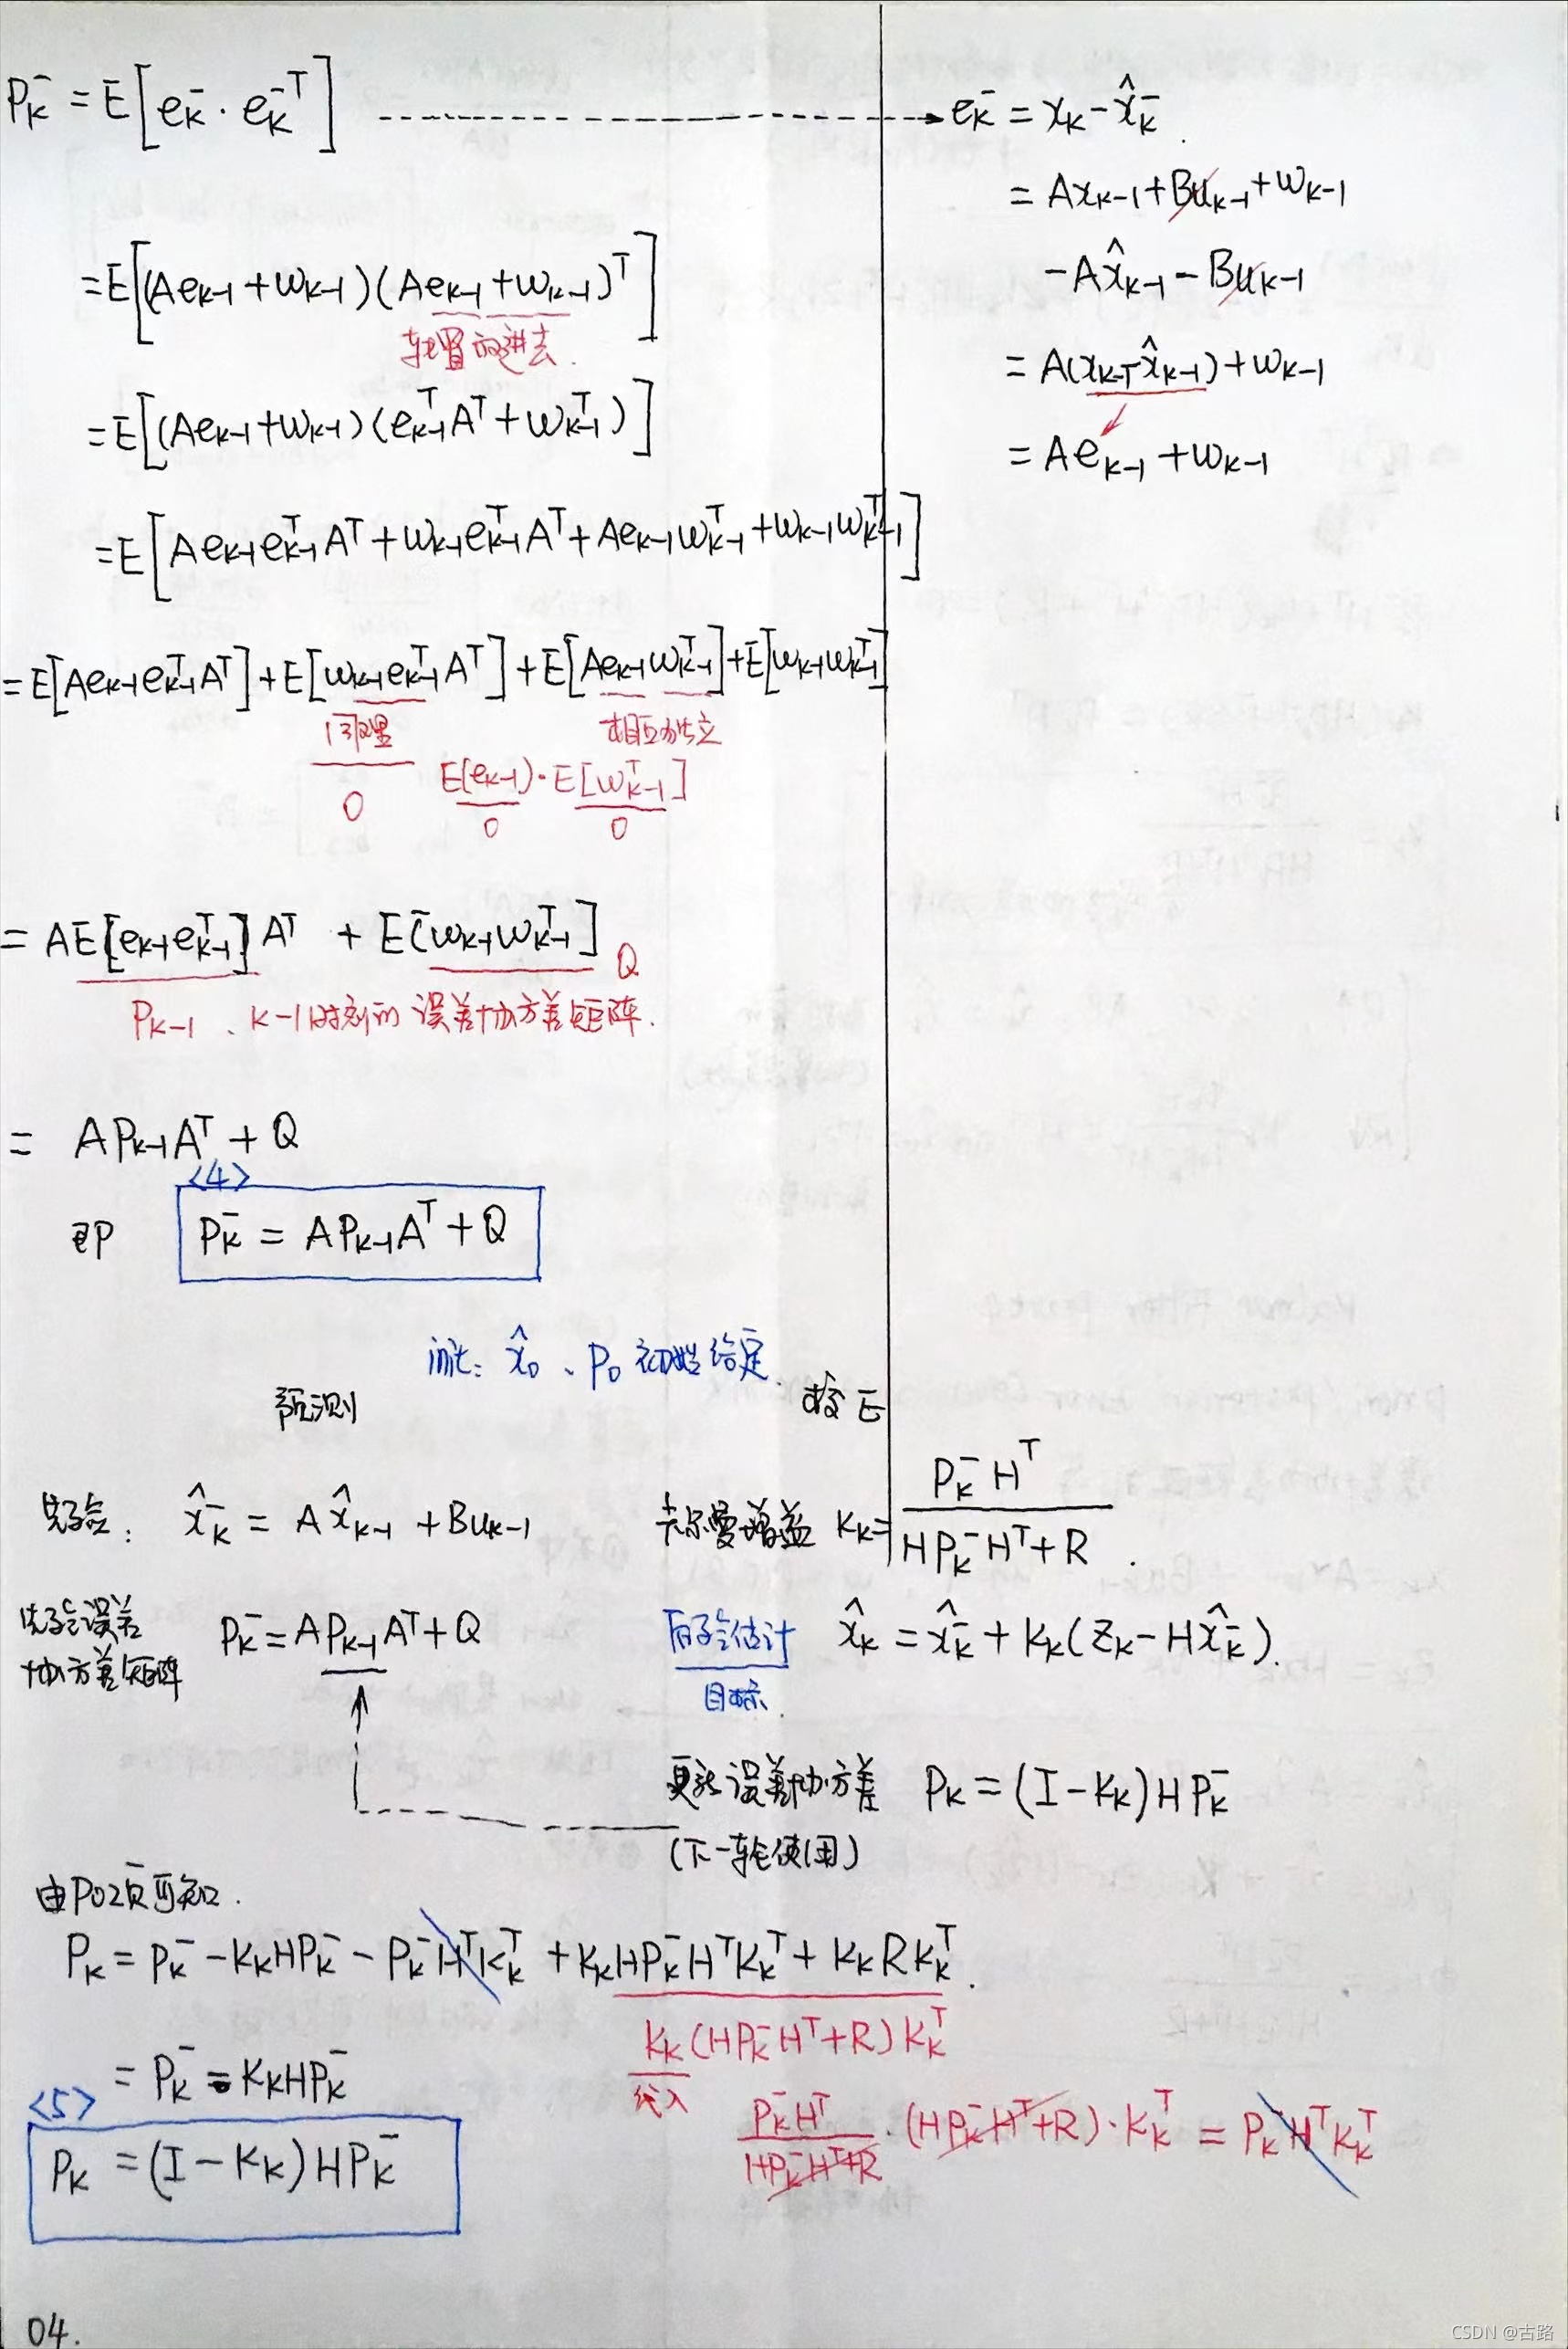 P_k^- = E[e_k^- · e_k^{-T}] ⇢ e_k^- = x_k - x̂_k^-
= Ax_{k-1} + Bu_{k-1} + w_{k-1}
- Ax̂_{k-1} - Bu_{k-1}
= A(x_{k-1} - x̂_{k-1}) + w_{k-1}
= Ae_{k-1} + w_{k-1}
= E[(Ae_{k-1} + w_{k-1})(Ae_{k-1} + w_{k-1})^T]
转置放进去.
= E[(Ae_{k-1} + w_{k-1})(e_{k-1}^T A^T + w_{k-1}^T)]
= E[Ae_{k-1}e_{k-1}^T A^T + w_{k-1}e_{k-1}^T A^T + Ae_{k-1}w_{k-1}^T + w_{k-1}w_{k-1}^T]
= E[Ae_{k-1}e_{k-1}^T A^T] + E[w_{k-1}e_{k-1}^T A^T] + E[Ae_{k-1}w_{k-1}^T] + E[w_{k-1}w_{k-1}^T]
同理 相互独立
0 E(e_{k-1}) · E[w_{k-1}^T]
0 0
= AE[e_{k-1}e_{k-1}^T]A^T + E[w_{k-1}w_{k-1}^T] Q
P_{k-1}、k-1时刻的误差协方差矩阵.
= AP_{k-1}A^T + Q
<4>
即 P_k^- = AP_{k-1}A^T + Q
x̂_0、P_0 初始给定.
预测 校正
先验: x̂_k^- = Ax̂_{k-1} + Bu_{k-1} 卡尔曼增益 K_k = P_k^- H^T / (HP_k^- H^T + R).
先验误差
协方差矩阵 P_k^- = AP_{k-1}A^T + Q 后验估计 x̂_k = x̂_k^- + K_k(Z_k - Hx̂_k^-).
目标.
更新误差协方差 P_k = (I - K_k)HP_k^-
(下一轮使用)
由P02页可知.
P_k = P_k^- - K_kHP_k^- - P_k^- H^T K_k^T + K_kHP_k^- H^T K_k^T + K_kRK_k^T.
K_k(HP_k^- H^T + R)K_k^T
= P_k^- - K_kHP_k^- 代入
P_k^- H^T / (HP_k^- H^T + R) · (HP_k^- H^T + R) · K_k^T = P_k^- H^T K_k^T
<5>
P_k = (I - K_k)HP_k^-
04.
CSDN @古路